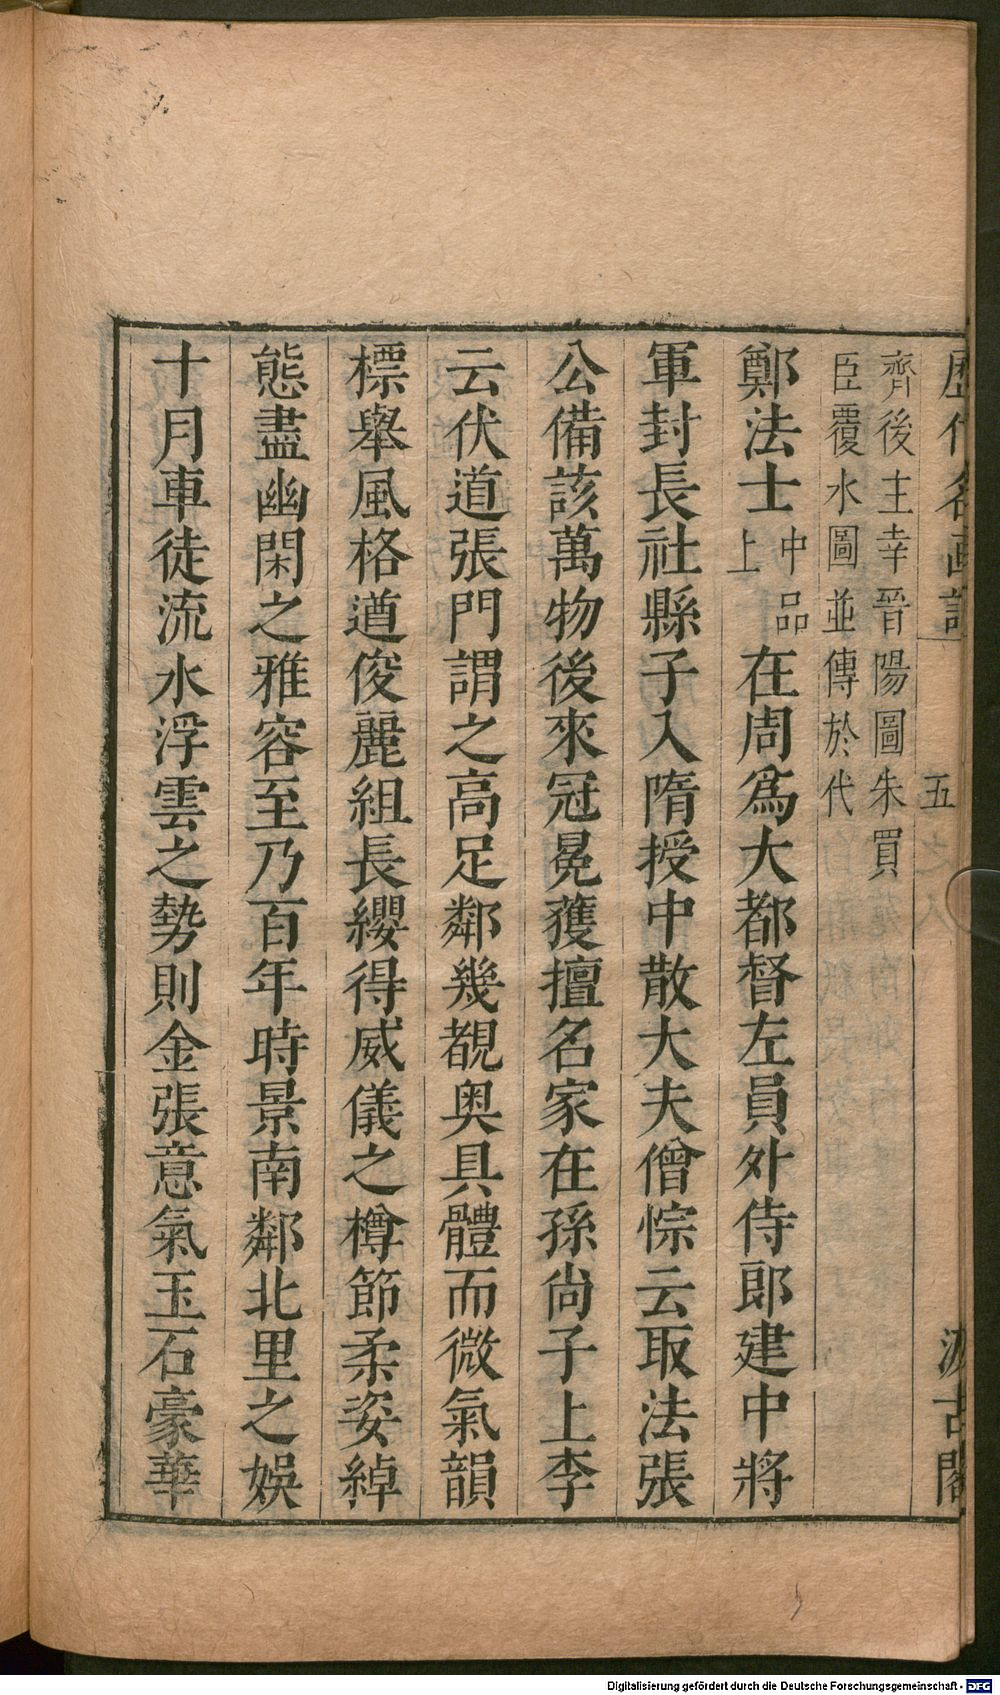 歷代名畫記
五
汲古閣
齊後主幸晉陽圖朱買
臣覆水圖並傳於代
鄭法士中品上在周爲大都督左員外侍郎建中將
軍封長社縣子入隋授中散大夫僧悰云取法張
公備該萬物後來冠冕獲擅名家在孫尚子上李
云伏道張門謂之高足鄰幾覩奥具體而微氣韻
標舉風格遒俊麗組長纓得威儀之樽節柔姿綽
態盡幽閑之雅容至乃百年時景南鄰北里之娛
十月車徒流水浮雲之勢則金張意氣玉石豪華
Digitalisierung gefördert durch die Deutsche Forschungsgemeinschaft - DFG